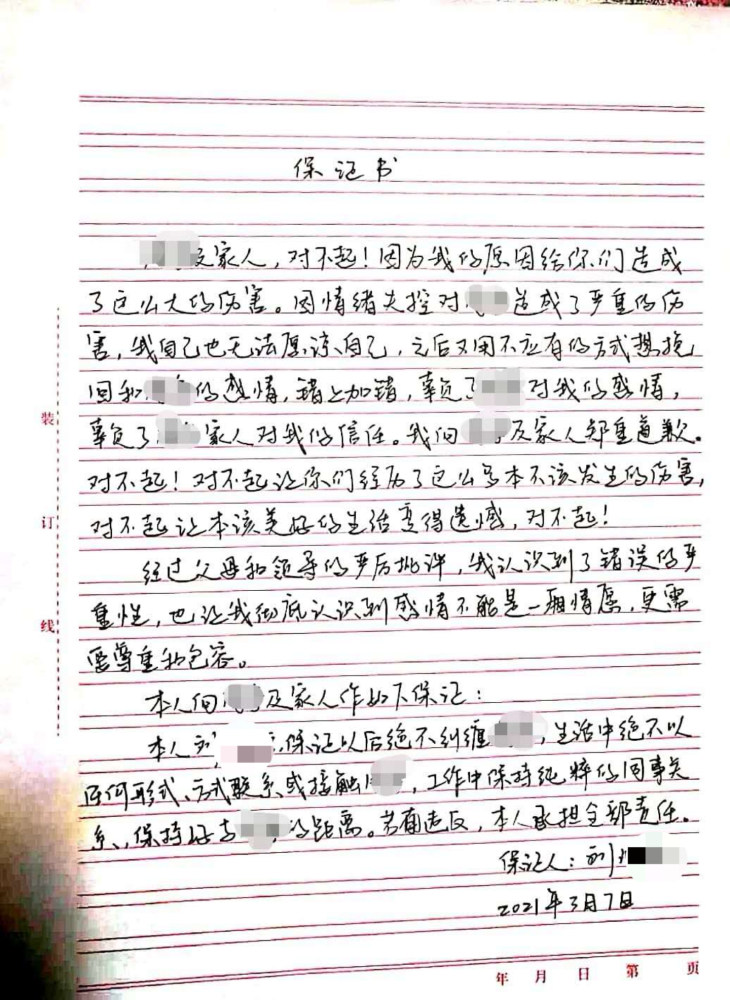 保证书
及家人，对不起！因为我的原因给你们造成
了这么大的伤害。因情绪失控对造成了严重的伤
害，我自己也无法原谅自己，之后又用不应有的方式想挽
回和的感情，错上加错，辜负了对我的感情，
辜负了家人对我的信任。我向及家人郑重道歉。
对不起！对不起让你们经历了这么多本不该发生的伤害，
对不起让本该美好的生活变得遗憾，对不起！
经过父母和领导的严厉批评，我认识到了错误的严
重性，也让我彻底认识到感情不能是一厢情愿，更需
要尊重和包容。
本人向及家人作如下保证：
本人刘，保证以后绝不纠缠，生活中绝不以
任何形式、方式联系或接触，工作中保持纯粹的同事关
系，保持好与的距离。若有违反，本人承担全部责任。
保证人：刘
2021年3月7日
装
订
线
年 月 日 第 页